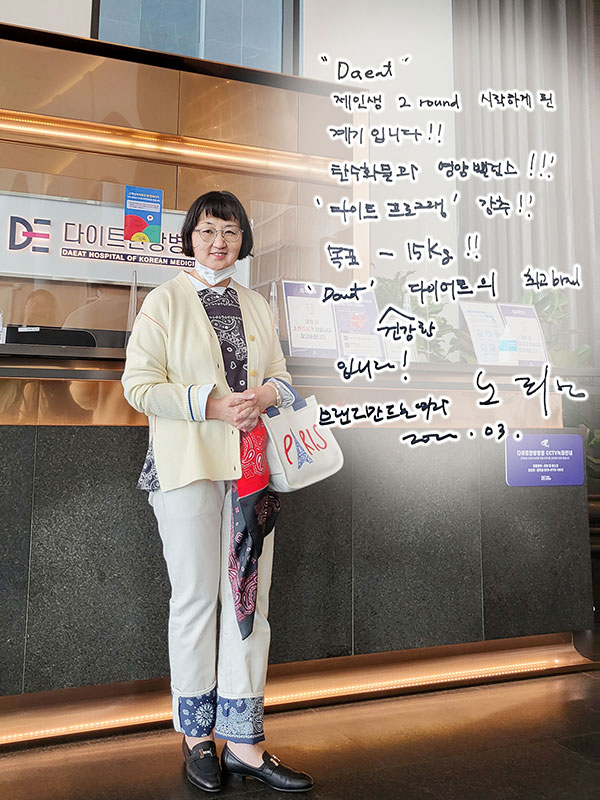 "Daeat"
제인생 2 round 시작하게 된
계기입니다!!
탄수화물과 영양밸런스!!!
"다이트 프로그램" 강추!!
목표 - 15kg!!
"Daeat" 다이어트의 최고 brand
건강한
입니다!
노리노
브랜디만드는여자
2022.03.
DE 다이트한방병
DAEAT HOSPITAL OF KOREAN MEDICI
PARIS
다이트한방병원 CCTV녹화안내